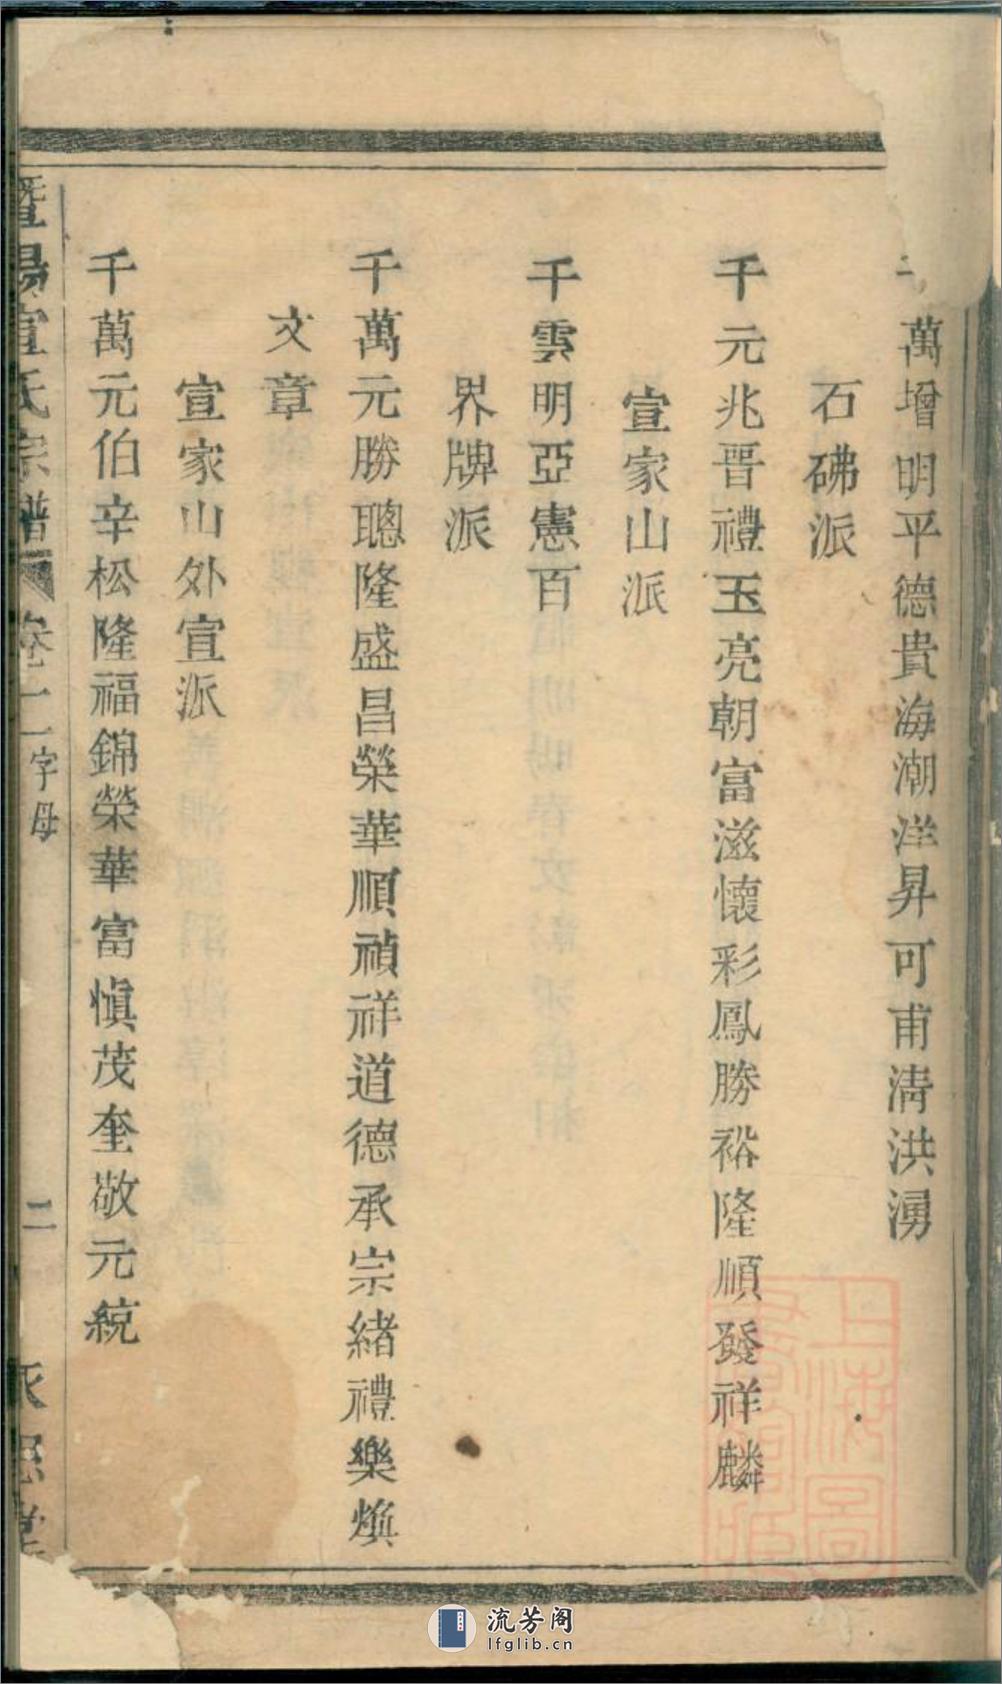 萬增明平德貴海潮洋昇可甫淸洪湧
石砩派
千元兆晉禮玉亮朝富滋懷彩鳳勝裕隆順發祥麟
宣家山派
千雲明亞憲百
界牌派
千萬元勝聰隆盛昌榮華順禎祥道德承宗緒禮樂煥
文章
宣家山外宣派
千萬元伯辛松隆福錦榮華富愼茂奎敬元統
暨陽宣氏宗譜
卷一
字母
二
上海圖書館藏
流芳阁
lfglib.cn